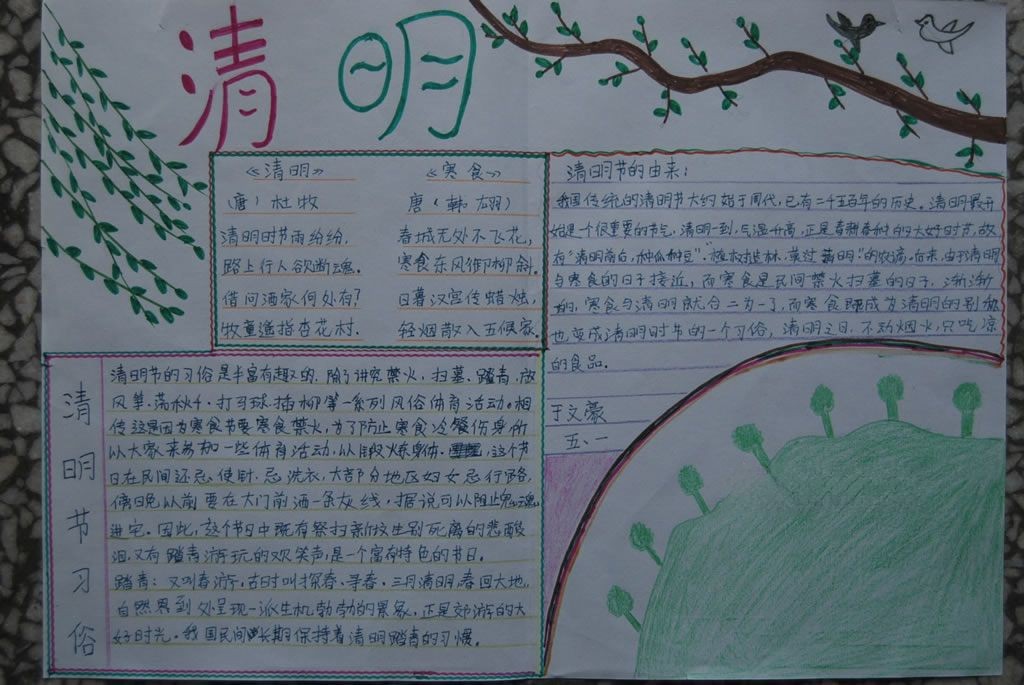 清明
《清明》
(唐)杜牧
清明时节雨纷纷，
路上行人欲断魂。
借问酒家何处有？
牧童遥指杏花村.
《寒食》
唐(韩翃)
春城无处不飞花，
寒食东风御柳斜。
日暮汉宫传蜡烛，
轻烟散入五侯家.
清明节的由来：
我国传统的清明节大约始于周代，已有二千五百年的历史。清明最开
始是个很重要的节气，清明一到，气温升高，正是春耕春种的大好时节，故
有“清明前后，种瓜种豆”。“植树造林，莫过清明”的农谚。后来，由于清明
与寒食的日子接近，而寒食是民间禁火扫墓的日子，渐渐
的，寒食与清明就合二为一了，而寒食既成为清明的别称
也变成清明时节的一个习俗，清明之日，不动烟火，只吃凉
的食品。
于文豪
五、一
清明节习俗
清明节的习俗是丰富有趣的，除了讲究禁火，扫墓、踏青，放
风筝、荡秋千，打马球插柳等一系列风俗体育活动。相
传这是因为寒食节要寒食禁火，为了防止寒食冷餐伤身，所
以大家来参加一些体育活动，以锻炼身体。这个节
日在民间还忌使针，忌洗衣，大部分地区妇女忌行路。
傍晚以前要在大门前洒一条灰线，据说可以阻止鬼魂
进宅。因此，这个节日中既有祭扫新坟生别死离的悲酸
泪，又有踏青游玩的欢笑声，是一个富有特色的节日。
踏青：又叫春游，古时叫探春、寻春，三月清明，春回大地，
自然界到处呈现一派生机勃勃的景象，正是郊游的大
好时光。我国民间长期保持着清明踏青的习惯。